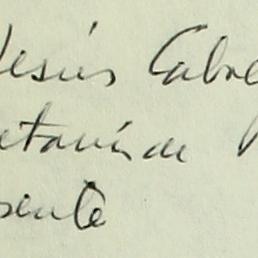 Jesús Cabre
etaría de
sente